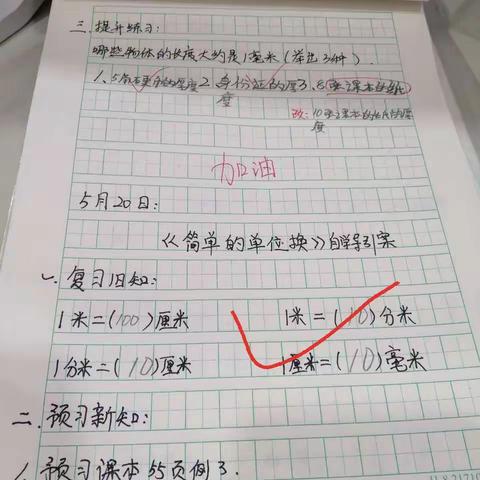 三.提升练习:
哪些物体的长度大约是1毫米(举出3种).
1、5角硬币的厚度2.身份证的厚3.8张课本的纸
度
改:10张课本纸的厚
度
加油
5月20日:
《简单的单位换》自学导引案
一、复习旧知:
1米=(100)厘米 1米=(10)分米
1分米=(10)厘米 1厘米=(10)毫米
二.预习新知:
1.预习课本55页例3.